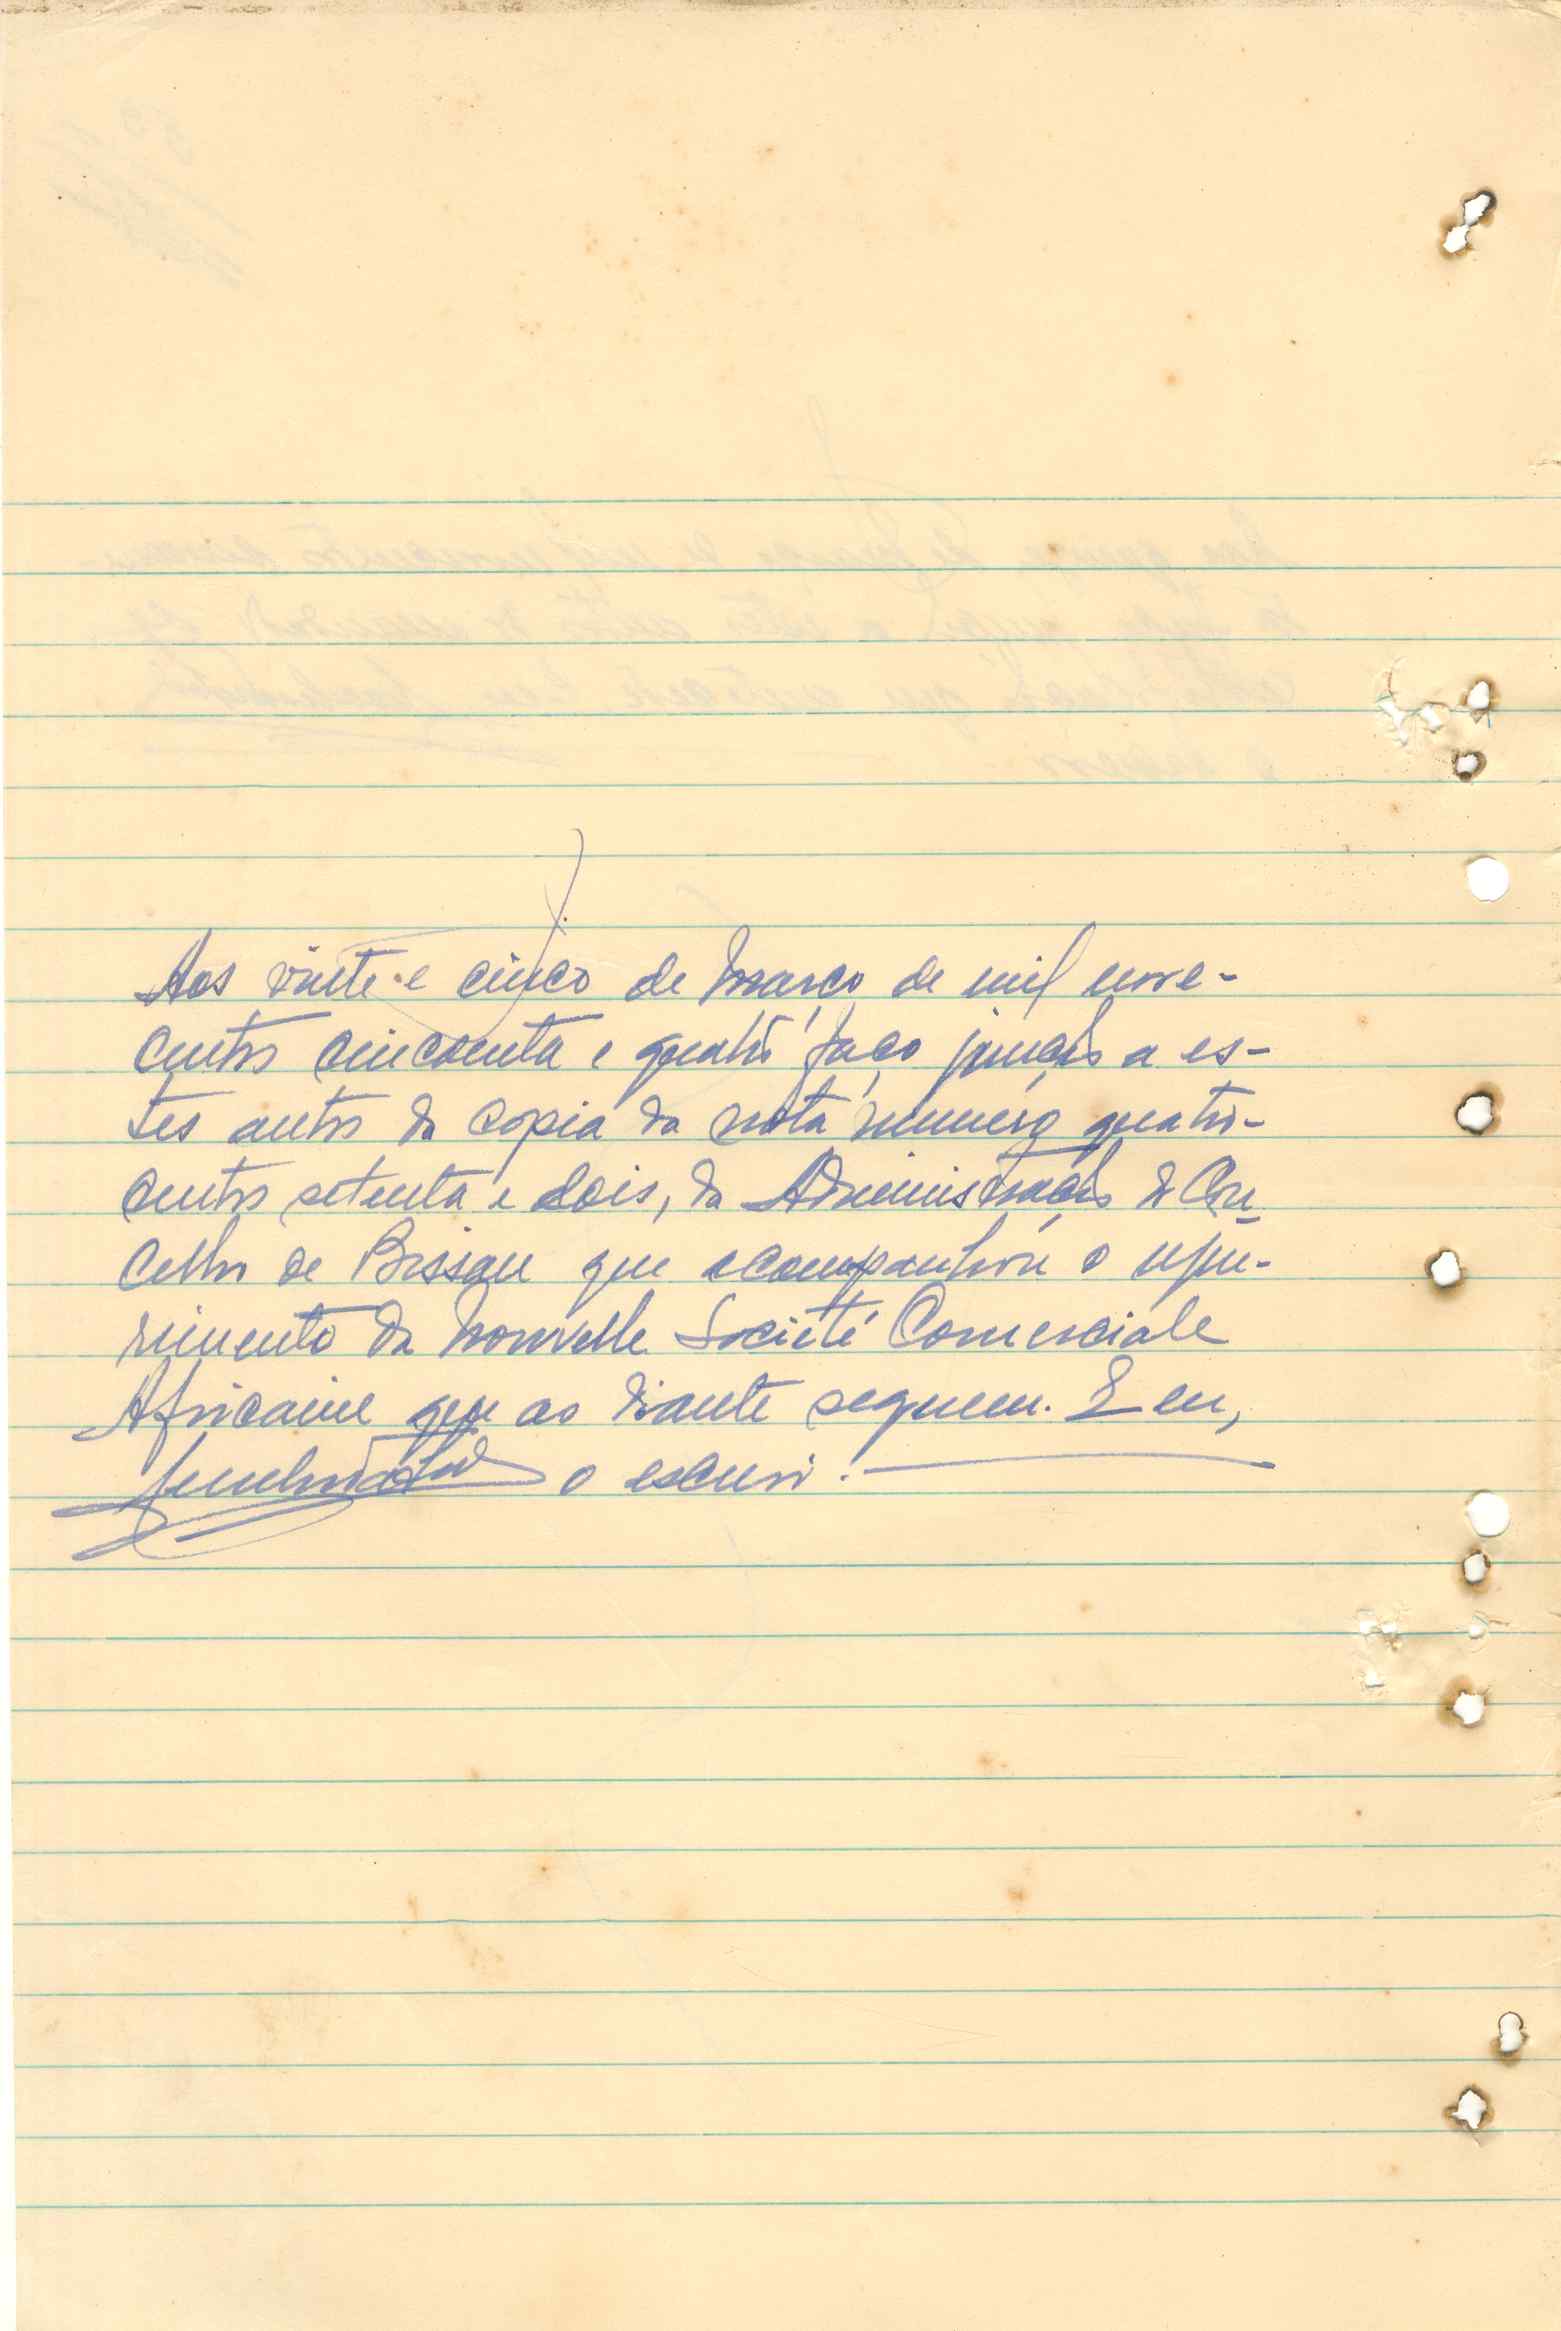 J.
Aos vinte e cinco de Março de mil nove-
centos cincoenta e quatro faço junção a es-
tes autos da copia da nota número quatro-
centos setenta e dois, da Administração do Con-
celho de Bissau que acompanhou o reque-
rimento da Nouvelle Societé Comerciale
Africaine que ao diante seguem. E eu,
o escrevi.